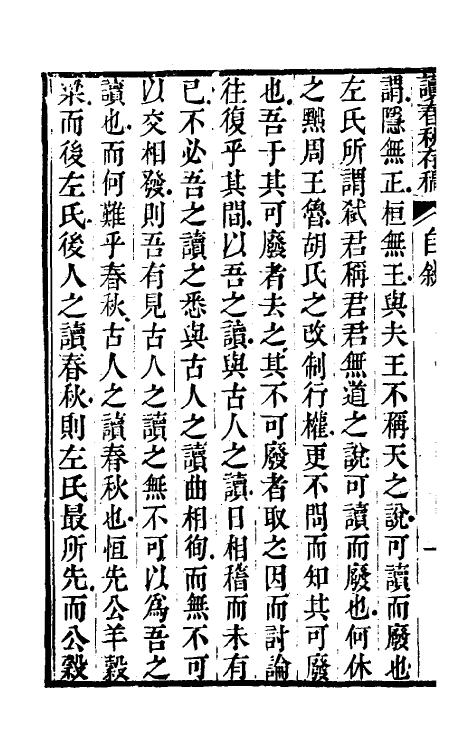 讀春秋存稿 自敘 一
謂隱無正桓無王與夫王不稱天之說可讀而廢也
左氏所謂弒君稱君君無道之說可讀而廢也何休
之黜周王魯胡氏之改制行權更不問而知其可廢
也吾于其可廢者去之其不可廢者取之因而討論
往復乎其間以吾之讀與古人之讀日相稽而未有
已不必吾之讀之悉與古人之讀曲相徇而無不可
以交相發則吾有見古人之讀之無不可以為吾之
讀也而何難乎春秋古人之讀春秋也恒先公羊穀
梁而後左氏後人之讀春秋則左氏最所先而公穀